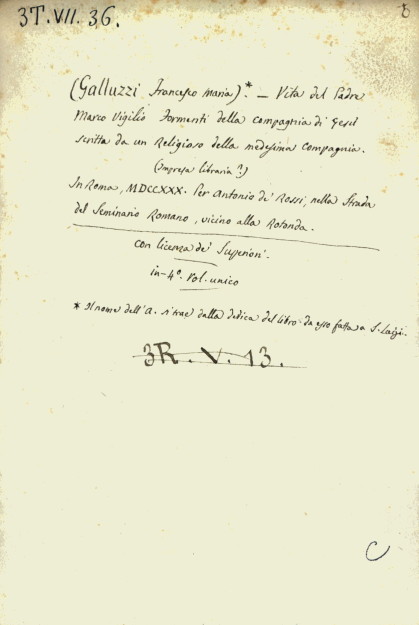 3T.VII.36.
(Galluzzi Francesco Maria)*. — Vita del Padre
Marco Vigilio Formenti della Compagnia di Gesù
scritta da un Religioso della medesima Compagnia.
(Impresa libraria?)
In Roma, MDCCXXX. Per Antonio de' Rossi, nella Strada
del Seminario Romano, vicino alla Rotonda.
con licenza de' Superiori.
in-4º. Vol. unico
* Il nome dell'A. si trae dalla dedica del libro da esso fatta a S. Luigi.
3R.V.13.
C